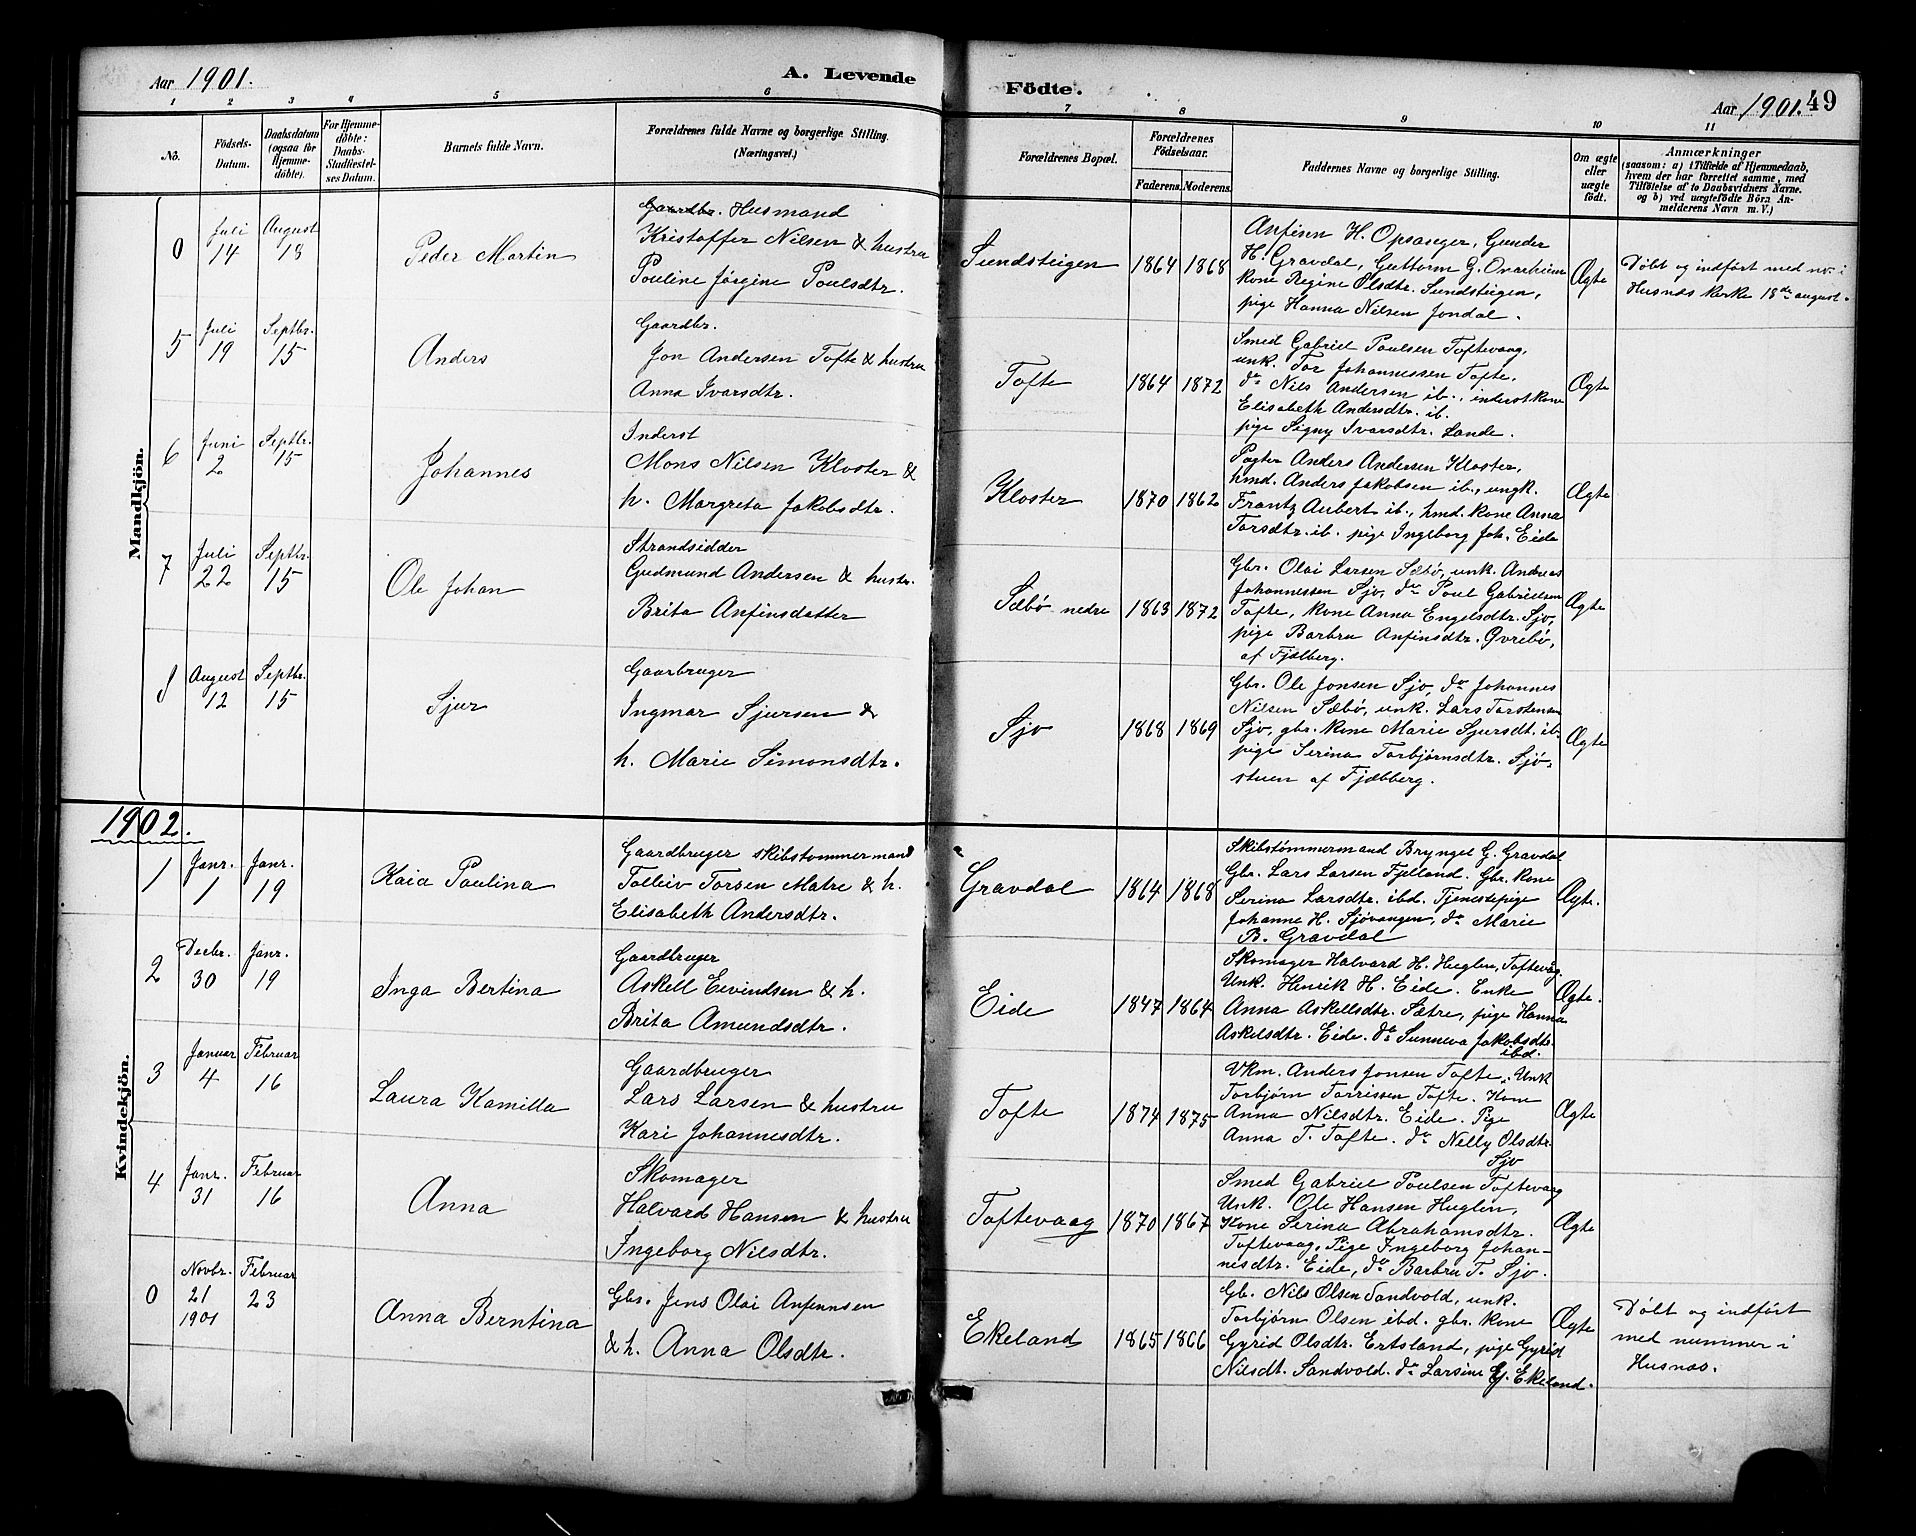 Aar 1901.
A. Levende
Födte.
Aar 1901.
49
1 2 3 4 5 6 7 8 9 10 11
No.
Födsels-
Datum.
Daabsdatum
(ogsaa for
Hjemme-
döbte).
For Hjemme-
döbte:
Daabs-
Stadfæstel-
ses Datum.
Barnets fulde Navn.
Forældrenes fulde Navne og borgerlige Stilling.
(Næringsvei.)
Forældrenes Bopæl.
Forældrenes
Födselsaar.
Faderens. Moderens.
Faddernes Navne og borgerlige Stilling.
Om ægte
eller
uægte
födt.
Anmærkninger
(saasom: a) i Tilfælde af Hjemmedaab,
hvem der har forrettet samme, med
Tilföielse af to Daabsvidners Navne.
og b) ved uægtefödte Börn An-
melderens Navn m. V.)
Mandkjön.
0
Juli
14
August
18
Peder Martin
Gaardbr. Husmand
Kristoffer Nilsen & hustru
Pouline Jørgine Poulsdtr.
Sundsteigen
1864 1868
Anfinn H. Opsanger, Gunder
H. Gravdal, Guttorm G. Ovarheim
kone Regine Olsdtr. Sundsteigen,
pige Hanna Nilsen Jondal.
Ægte
Døbt og indført med no. i
Husnæs kirke 18de august.
5
Juli
19
Septbr.
15
Anders
Gaardbr.
Jon Andersen Tofte & hustru
Anna Ivarsdtr.
Tofte
1864 1872
Smed Gabriel Poulsen Toftevaag,
unk. Tor Johannessen Tofte,
do Nils Andersen ib., inderst kone
Elisabeth Andersdtr. ib.
pige Signy Ivarsdtr. Lande.
Ægte
6
Juni
2
Septbr.
15
Johannes
Inderst
Mons Nilsen Kloster &
h. Margreta Jakobsdtr.
Kloster
1870 1862
Pagter Anders Andersen Kloster,
hmd. Anders Jakobsen ib., ungk.
Frantz Aubert ib., hmd. kone Anna
Torsdtr. ib. pige Ingeborg Joh. Eide
Ægte
7
Juli
22
Septbr.
15
Ole Johan
Strandsidder
Gudmund Andersen & hustr.
Brita Anfinsdatter
Sæbø nedre
1863 1872
Gbr. Olai Larsen Sæbø, unk. Andreas
Johannessen Sjo, do Poul Gabrielsen
Tofte, kone Anna Engelsdtr. Sjo,
pige Barbru Anfinsdtr. Øvrebø,
af Fjelberg.
Ægte
8
August
12
Septbr.
15
Sjur
Gaarbruger
Ingmar Sjursen &
h. Marie Simonsdtr.
Sjo
1868 1869
Gbr. Ole Jonsen Sjo, do Johannes
Nilsen Sæbø, unk. Lars Torstensen
Sjo, gbr. kone Marie Sjursdt. ib.
pige Serina Torbjørnsdtr. Sjø-
stuen af Fjelberg.
Ægte
1902.
Kvindekjön.
1
Janr.
1
Janr.
19
Kaia Paulina
Gaardbruger skibstommermand
Tolleiv Torsen Matre & h.
Elisabeth Andersdtr.
Gravdal
1864 1868
Skibstømmermand Bryngel G. Gravdal
Gbr. Lars Larsen Fjelland. Gbr. kone
Serina Larsdtr. ibd. Tjenestepige
Johanne H. Sjøvangen, do Marie
B. Gravdal
Ægte.
2
Decbr.
30
Janr.
19
Inga Bertina
Gaardbruger
Askell Eivindsen & h.
Brita Amundsdtr.
Eide
1847 1864
Skomager Halvard H. Huglen, Toftevåg.
Unk. Henrik H. Eide. Enke
Anna Askellsdtr. Sætre, pige Hanna
Askelsdtr. Eide. do Sunneva Jakobsdtr.
ibd.
Ægte.
3
Januar
4
Februar
16
Laura Kamilla
Gaardbruger
Lars Larsen & hustru
Kari Johannesdtr.
Tofte
1874 1875
Ukm. Anders Jonsen Tofte. Unk
Torbjørn Torrissen Tofte. Kone
Anna Nilsdtr. Eide. Pige
Anna T. Tofte. do Nelly Olsdtr.
Sjo
Ægte
4
Janr.
31
Februar
16
Anna
Skomager
Halvard Hansen & hustru
Ingeborg Nilsdtr.
Toftevaag
1870 1867
Smed Gabriel Poulsen Toftevaag
Unk. Ole Hansen Huglen,
Kone Serina Abrahamsdtr.
Toftevaag, Pige Ingeborg Johan-
nesdtr. Eide, do Barbru T. Sjo.
Ægte
0
Novbr.
21
1901
Februar
23
Anna Berntina
Gbr. Jens Olai Anfinnsen
& h. Anna Olsdtr.
Ekeland
1865 1866
Gb. Nils Olsen Sandvold, unk.
Torbjørn Olsen ibd. gbr. kone
Gyrid Olsdtr. Ertsland, pige Gyrid
Nilsdt. Sandvold. do Larsine G. Ekeland.
Ægte
Døbt og indført
med nummer i
Husnæs.